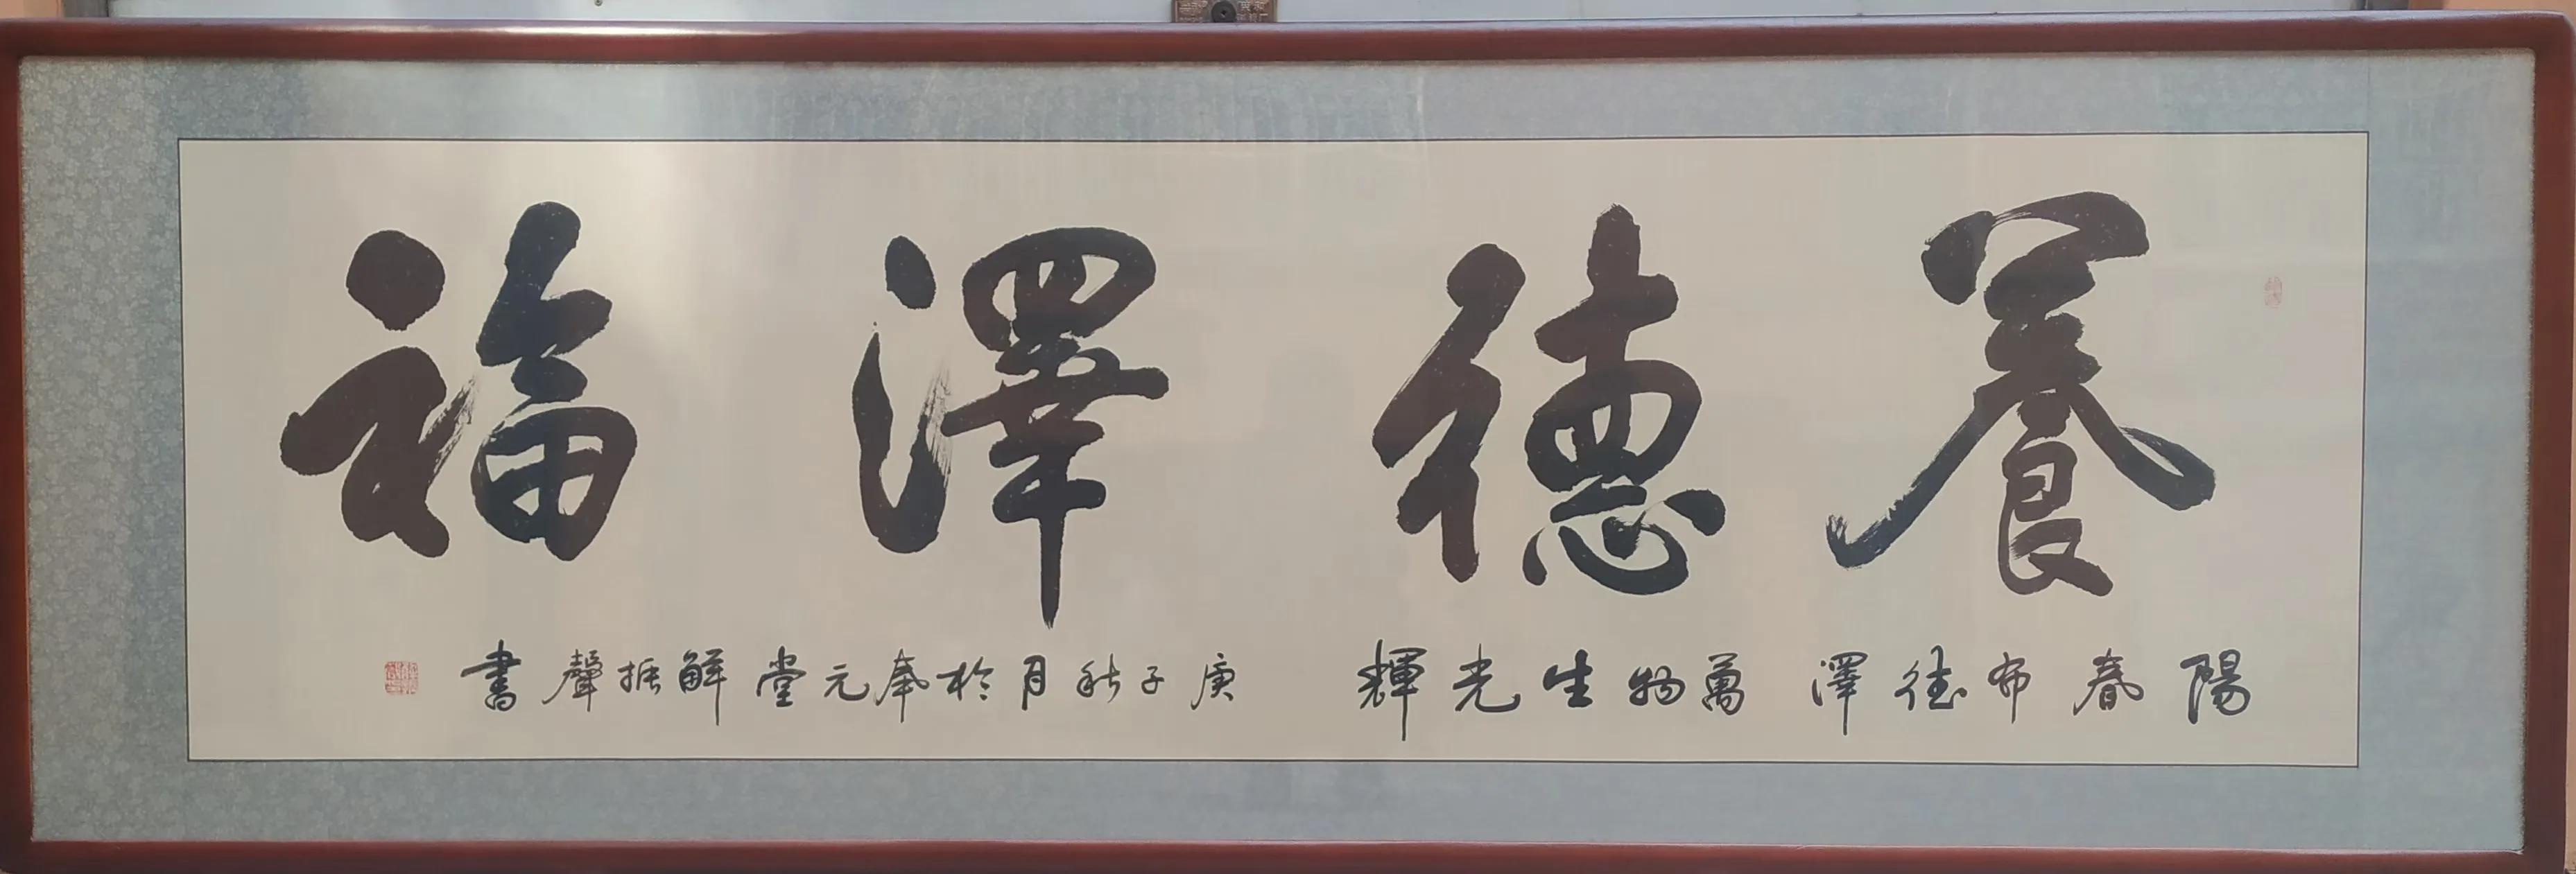 養德澤福
陽春布德澤萬物生光輝庚子秋月於奉元堂解振聲書